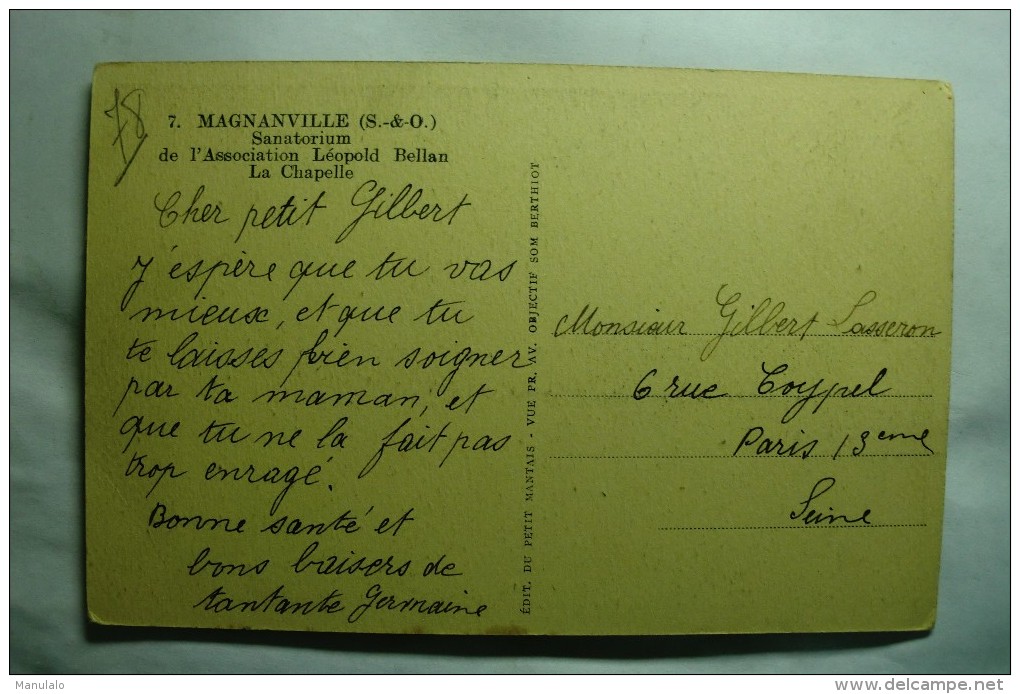 78
7. MAGNANVILLE (S.-&-O.)
Sanatorium
de l'Association Léopold Bellan
La Chapelle
Cher petit Gilbert
J'éspère que tu vas
mieux, et que tu
te laisses bien soigner
par ta maman, et
que tu ne la fait pas
trop enragé.
Bonne santé et
bons baisers de
tantante Germaine
ÉDIT. DU PETIT MANTAIS - VUE PR. AV. OBJECTIF SOM BERTHIOT
Monsieur Gilbert Lasseron
6 rue Coypel
Paris 13eme
Seine
Manulalo
www.delcampe.net